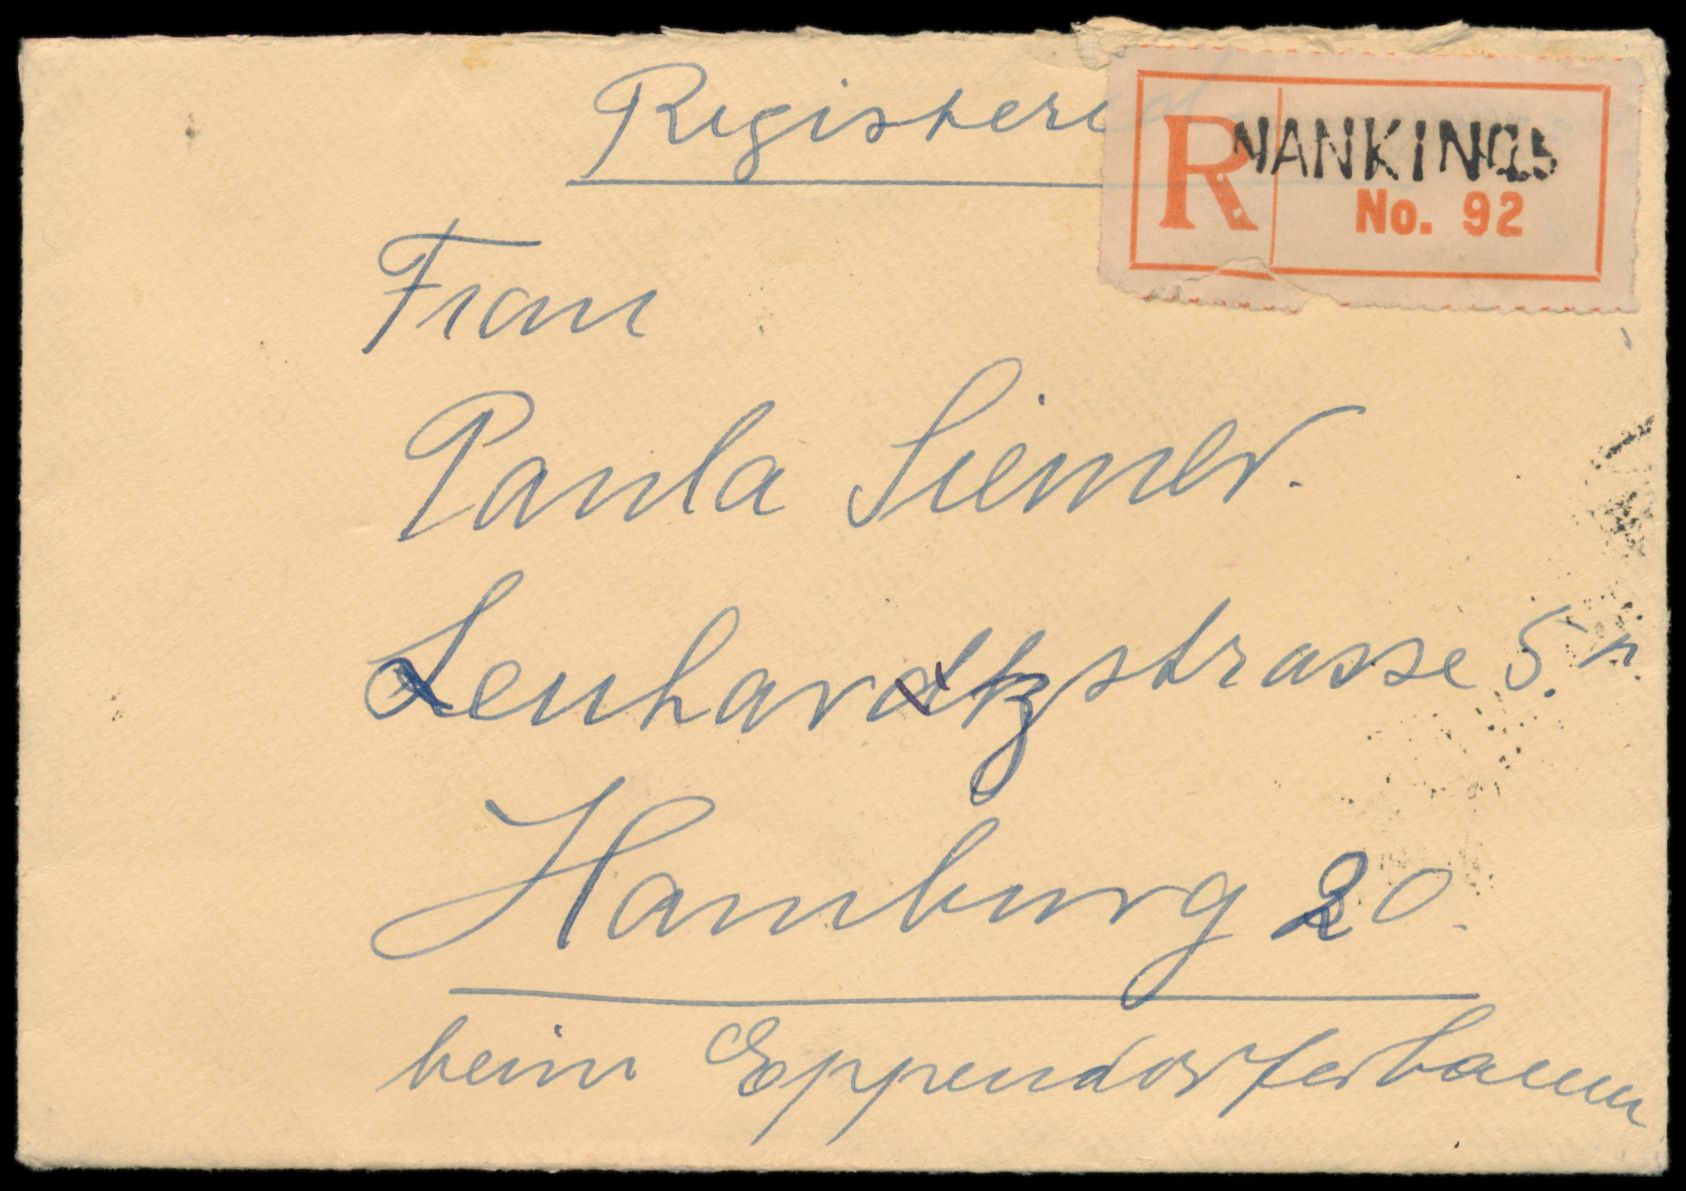 Registered
R NANKING.5
No. 92
Frau
Paula Siemer.
Lenhartzstrasse 5.
Hamburg 20.
beim Eppendorferbaum